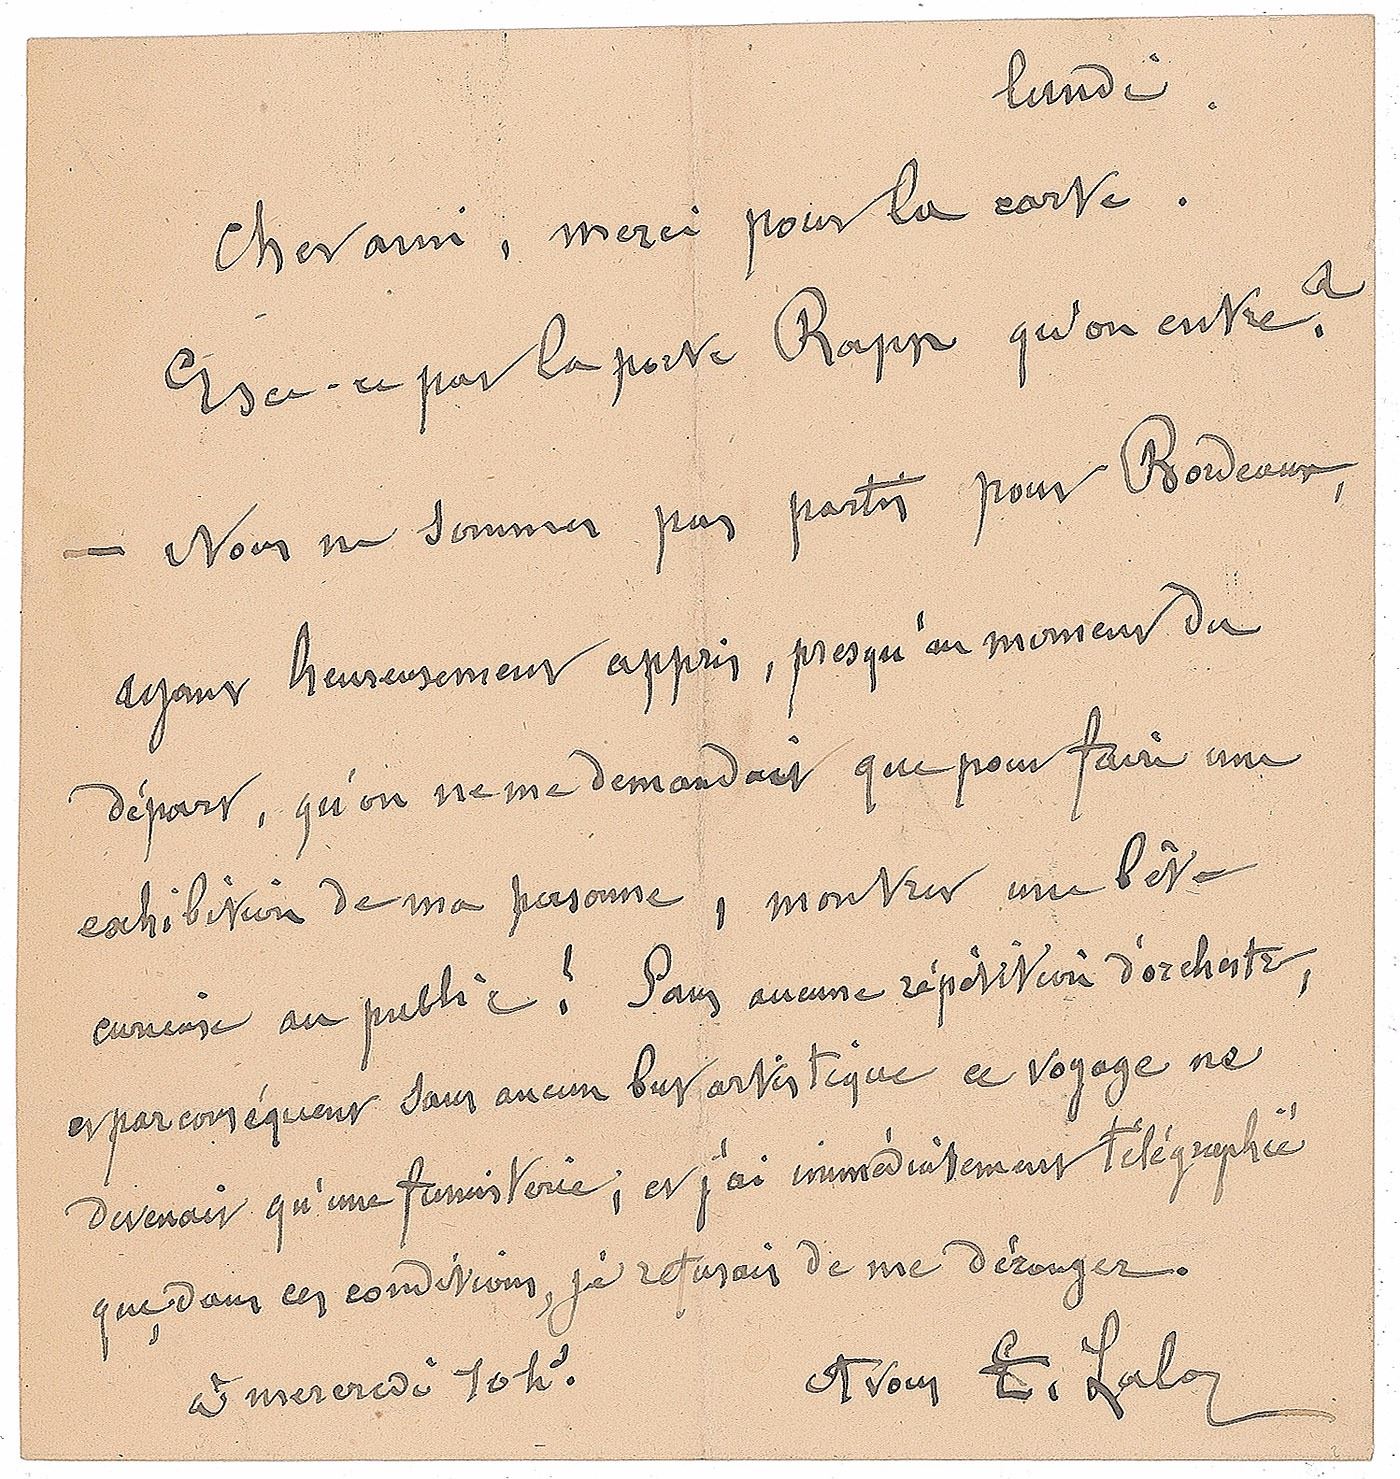 lundi.
Cher ami, merci pour la carte.
Est-ce par la porte Rapp qu'on entre?
— Nous ne sommes pas partis pour Bordeaux,
ayant heureusement appris, presqu'au moment du
départ, qu'on ne me demandait que pour faire une
exhibition de ma personne, montrer une bête
curieuse au public! Sans aucune répétition d'orchestre,
et par conséquent sans aucun but artistique ce voyage ne
devenait qu'une fumisterie; et j'ai immédiatement télégraphié
que, dans ces conditions, je refusais de me déranger.
à mercredi 10 hs.
A vous E. Lalo